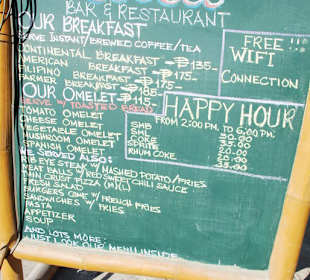 BAR & RESTAURANT
OUR BREAKFAST
SERVE INSTANT/BREWED COFFEE/TEA
CONTINENTAL BREAKFAST ₱135.-
AMERICAN BREAKFAST ₱175.-
FILIPINO BREAKFAST ₱175.-
FARMER BREAKFAST ₱185.-
OUR OMELET ₱115.-
SERVE W/ TOASTED BREAD
TOMATO OMELET
CHEESE OMELET
VEGETABLE OMELET
MUSHROOM OMELET
SPANISH OMELET
WE SERVED ALSO:
RIB EYE STEAK W/ MASHED POTATO/FRIES
MEAT BALLS W/ RED SWEET CHILI SAUCE
THIN CRUST PIZZA (M)(L)
FRESH SALAD
BURGERS COME W/ FRENCH FRIES
SANDWICHES W/ FRIES
PASTA
APPETIZER
SOUP
AND LOTS MORE
JUST LOOK OUR MENU INSIDE
FREE
WIFI
CONNECTION
HAPPY HOUR
FROM 2:00 P.M. TO 6:00 P.M.
SMB
SML
COKE 35.00
SPRITE
RHUM COKE 35.00